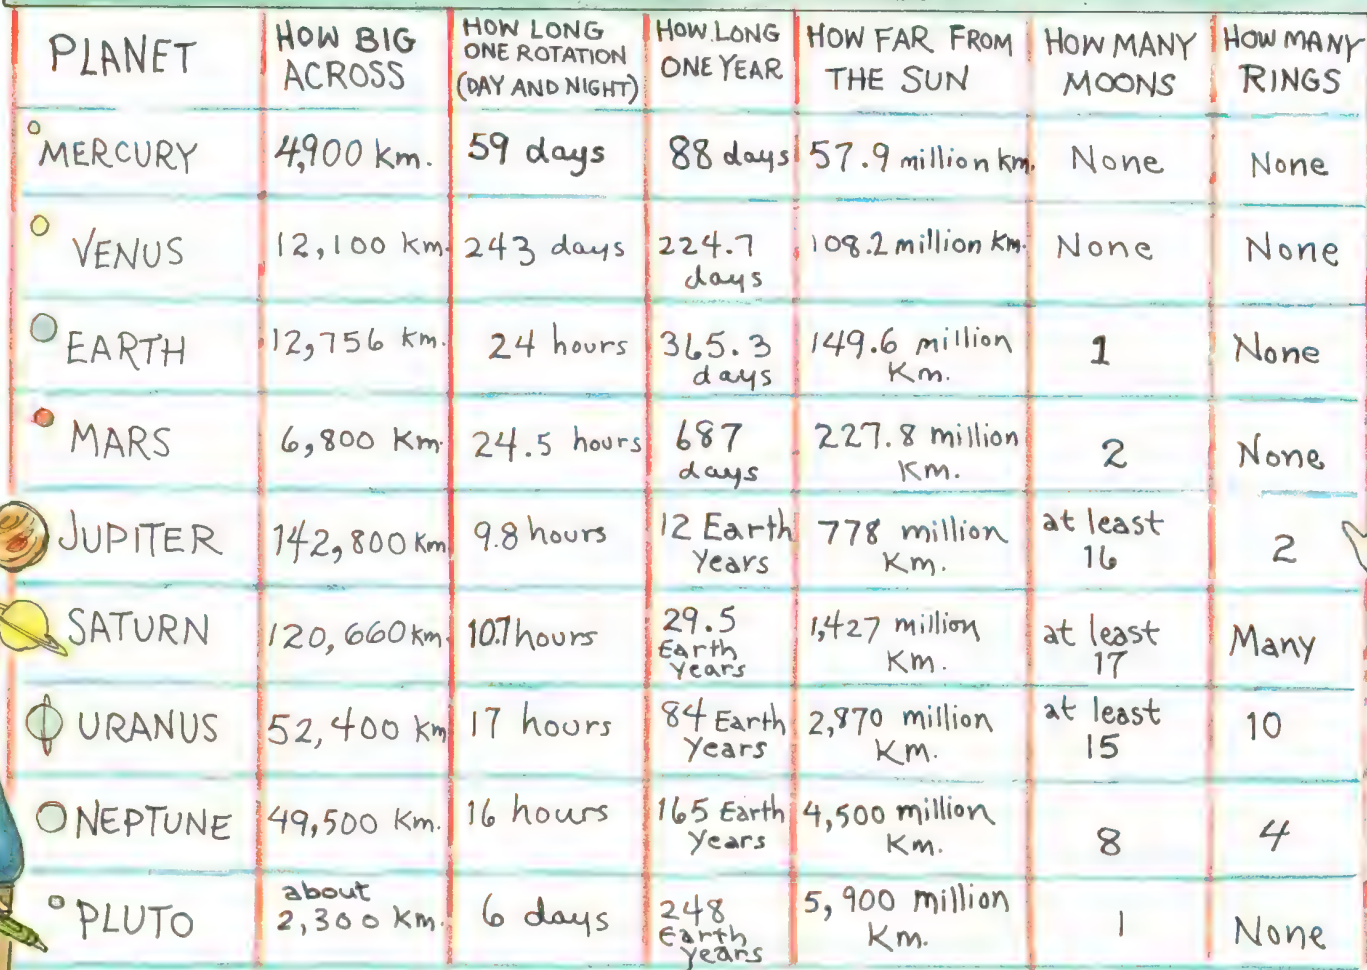 PLANET
HOW BIG
ACROSS
HOW LONG
ONE ROTATION
(DAY AND NIGHT)
HOW LONG
ONE YEAR
HOW FAR FROM
THE SUN
HOW MANY
MOONS
HOW MANY
RINGS
MERCURY
4,900 Km.
59 days
88 days
57.9 million Km.
None
None
VENUS
12,100 Km.
243 days
224.7
days
108.2 million Km.
None
None
EARTH
12,756 Km.
24 hours
365.3
days
149.6 million
Km.
1
None
MARS
6,800 Km.
24.5 hours
687
days
227.8 million
Km.
2
None
JUPITER
142,800 Km
9.8 hours
12 Earth
Years
778 million
Km.
at least
16
2
SATURN
120,660 Km.
10.7 hours
29.5
Earth
Years
1,427 million
Km.
at least
17
Many
URANUS
52,400 Km
17 hours
84 Earth
Years
2,870 million
Km.
at least
15
10
NEPTUNE
49,500 Km.
16 hours
165 Earth
Years
4,500 million
Km.
8
4
PLUTO
about
2,300 Km.
6 days
248
Earth
Years
5,900 million
Km.
1
None